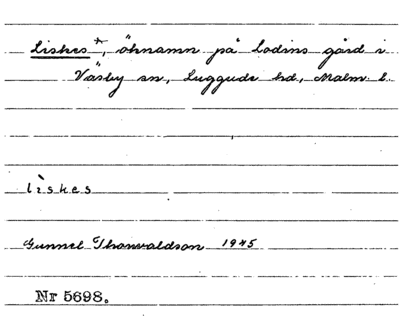 Liskes +, öknamn på Lodins gård i
Väsby sn, Luggude hd, Malm. l.
lìskes
Gunnel Thorvaldson 1945
Nr 5698.